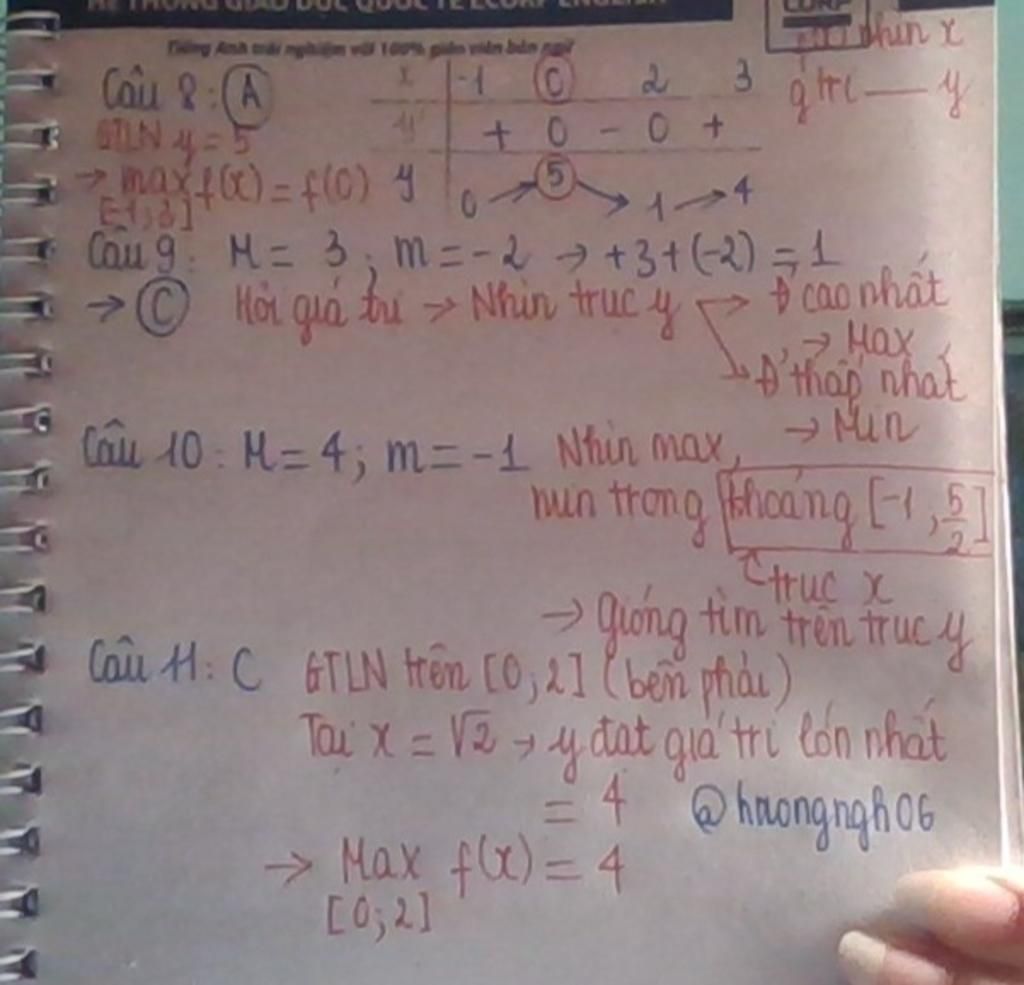 HỆ THỐNG GIÁO DỤC QUỐC TẾ ECORP ENGLISH
Tiếng Anh trải nghiệm với 100% giáo viên bản ngữ
nhìn x
g trị — y
Câu 8: A
x -1 0 2 3
y' + 0 - 0 +
y 0 → 5 → 1 → 4
GTLN y = 5
→ max f(x) = f(0)
[-1; 3]
Câu 9: M = 3; m = -2 → +3+(-2) = 1
→ C Hỏi giá trị → Nhìn trục y → Đ' cao nhất
→ Max
→ Đ' thấp nhất
→ Min
Câu 10: M = 4; m = -1 Nhìn max,
min trong khoảng [-1, 5/2]
trục x
→ gióng tìm trên trục y
Câu 11: C GTLN trên [0;2] (bên phải)
Tại x = √2 → y đạt giá trị lớn nhất
= 4 @huongngh06
→ Max f(x) = 4
[0;2]